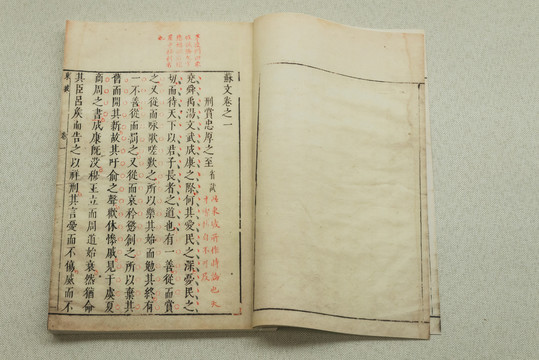 蘇文卷之一
刑賞忠厚之至 省試
堯舜禹湯文武成康之際何其愛民之深憂民之
切而待天下以君子長者之道也有一善從而賞
之又從而咏歌嗟歎之所以樂其始而勉其終有
一不善從而罰之又從而哀矜懲創之所以棄其
舊而開其新故其吁俞之聲歡休慘戚見于虞夏
商周之書成康旣沒穆王立而周道始衰然猶命
其臣呂矦而告之以祥刑其言憂而不傷威而不